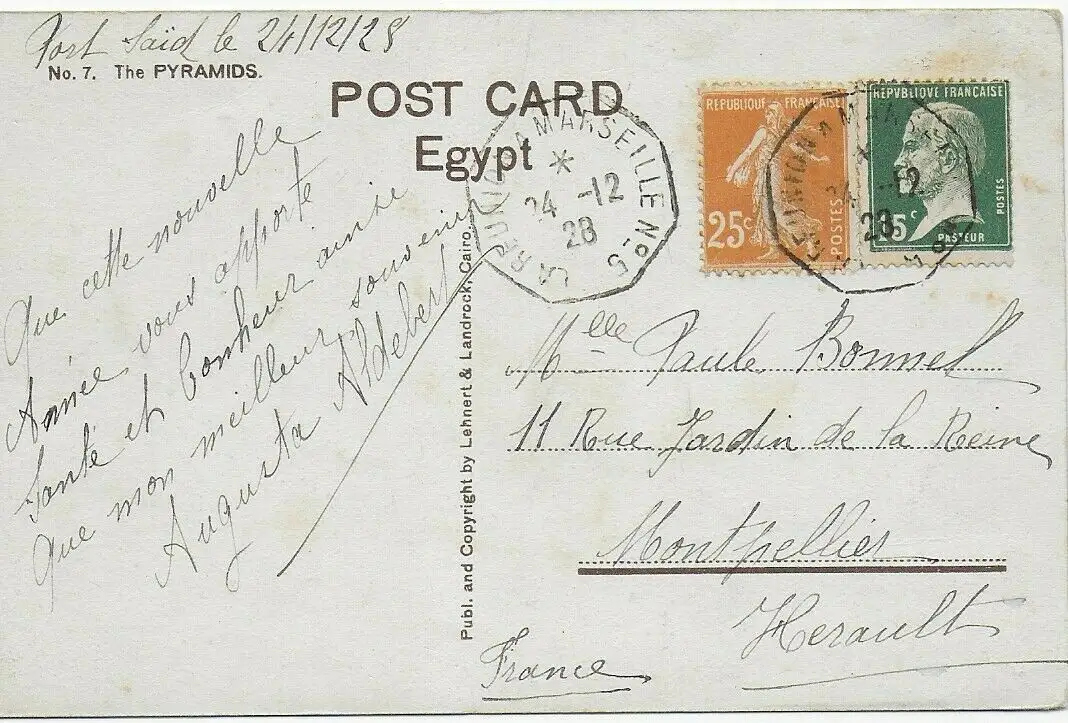 Port Saïd le 24/12/28
No. 7. The PYRAMIDS.
POST CARD
Egypt
Que cette nouvelle
Année vous apporte
Santé et bonheur ainsi
que mon meilleur souvenir
Augusta Aldebert
Publ. and Copyright by Lehnert & Landrock, Cairo.
LA REUNION A MARSEILLE No 5
24 -12
28
REPUBLIQUE FRANÇAISE
25c
POSTES
REPVBLIQVE FRANÇAISE
15c
POSTES
PASTEUR
LA REUNION A MARSEILLE No 5
24 -12
28
Mlle Paule Bonnel
11 Rue Jardin de la Reine
Montpellier
Herault
France